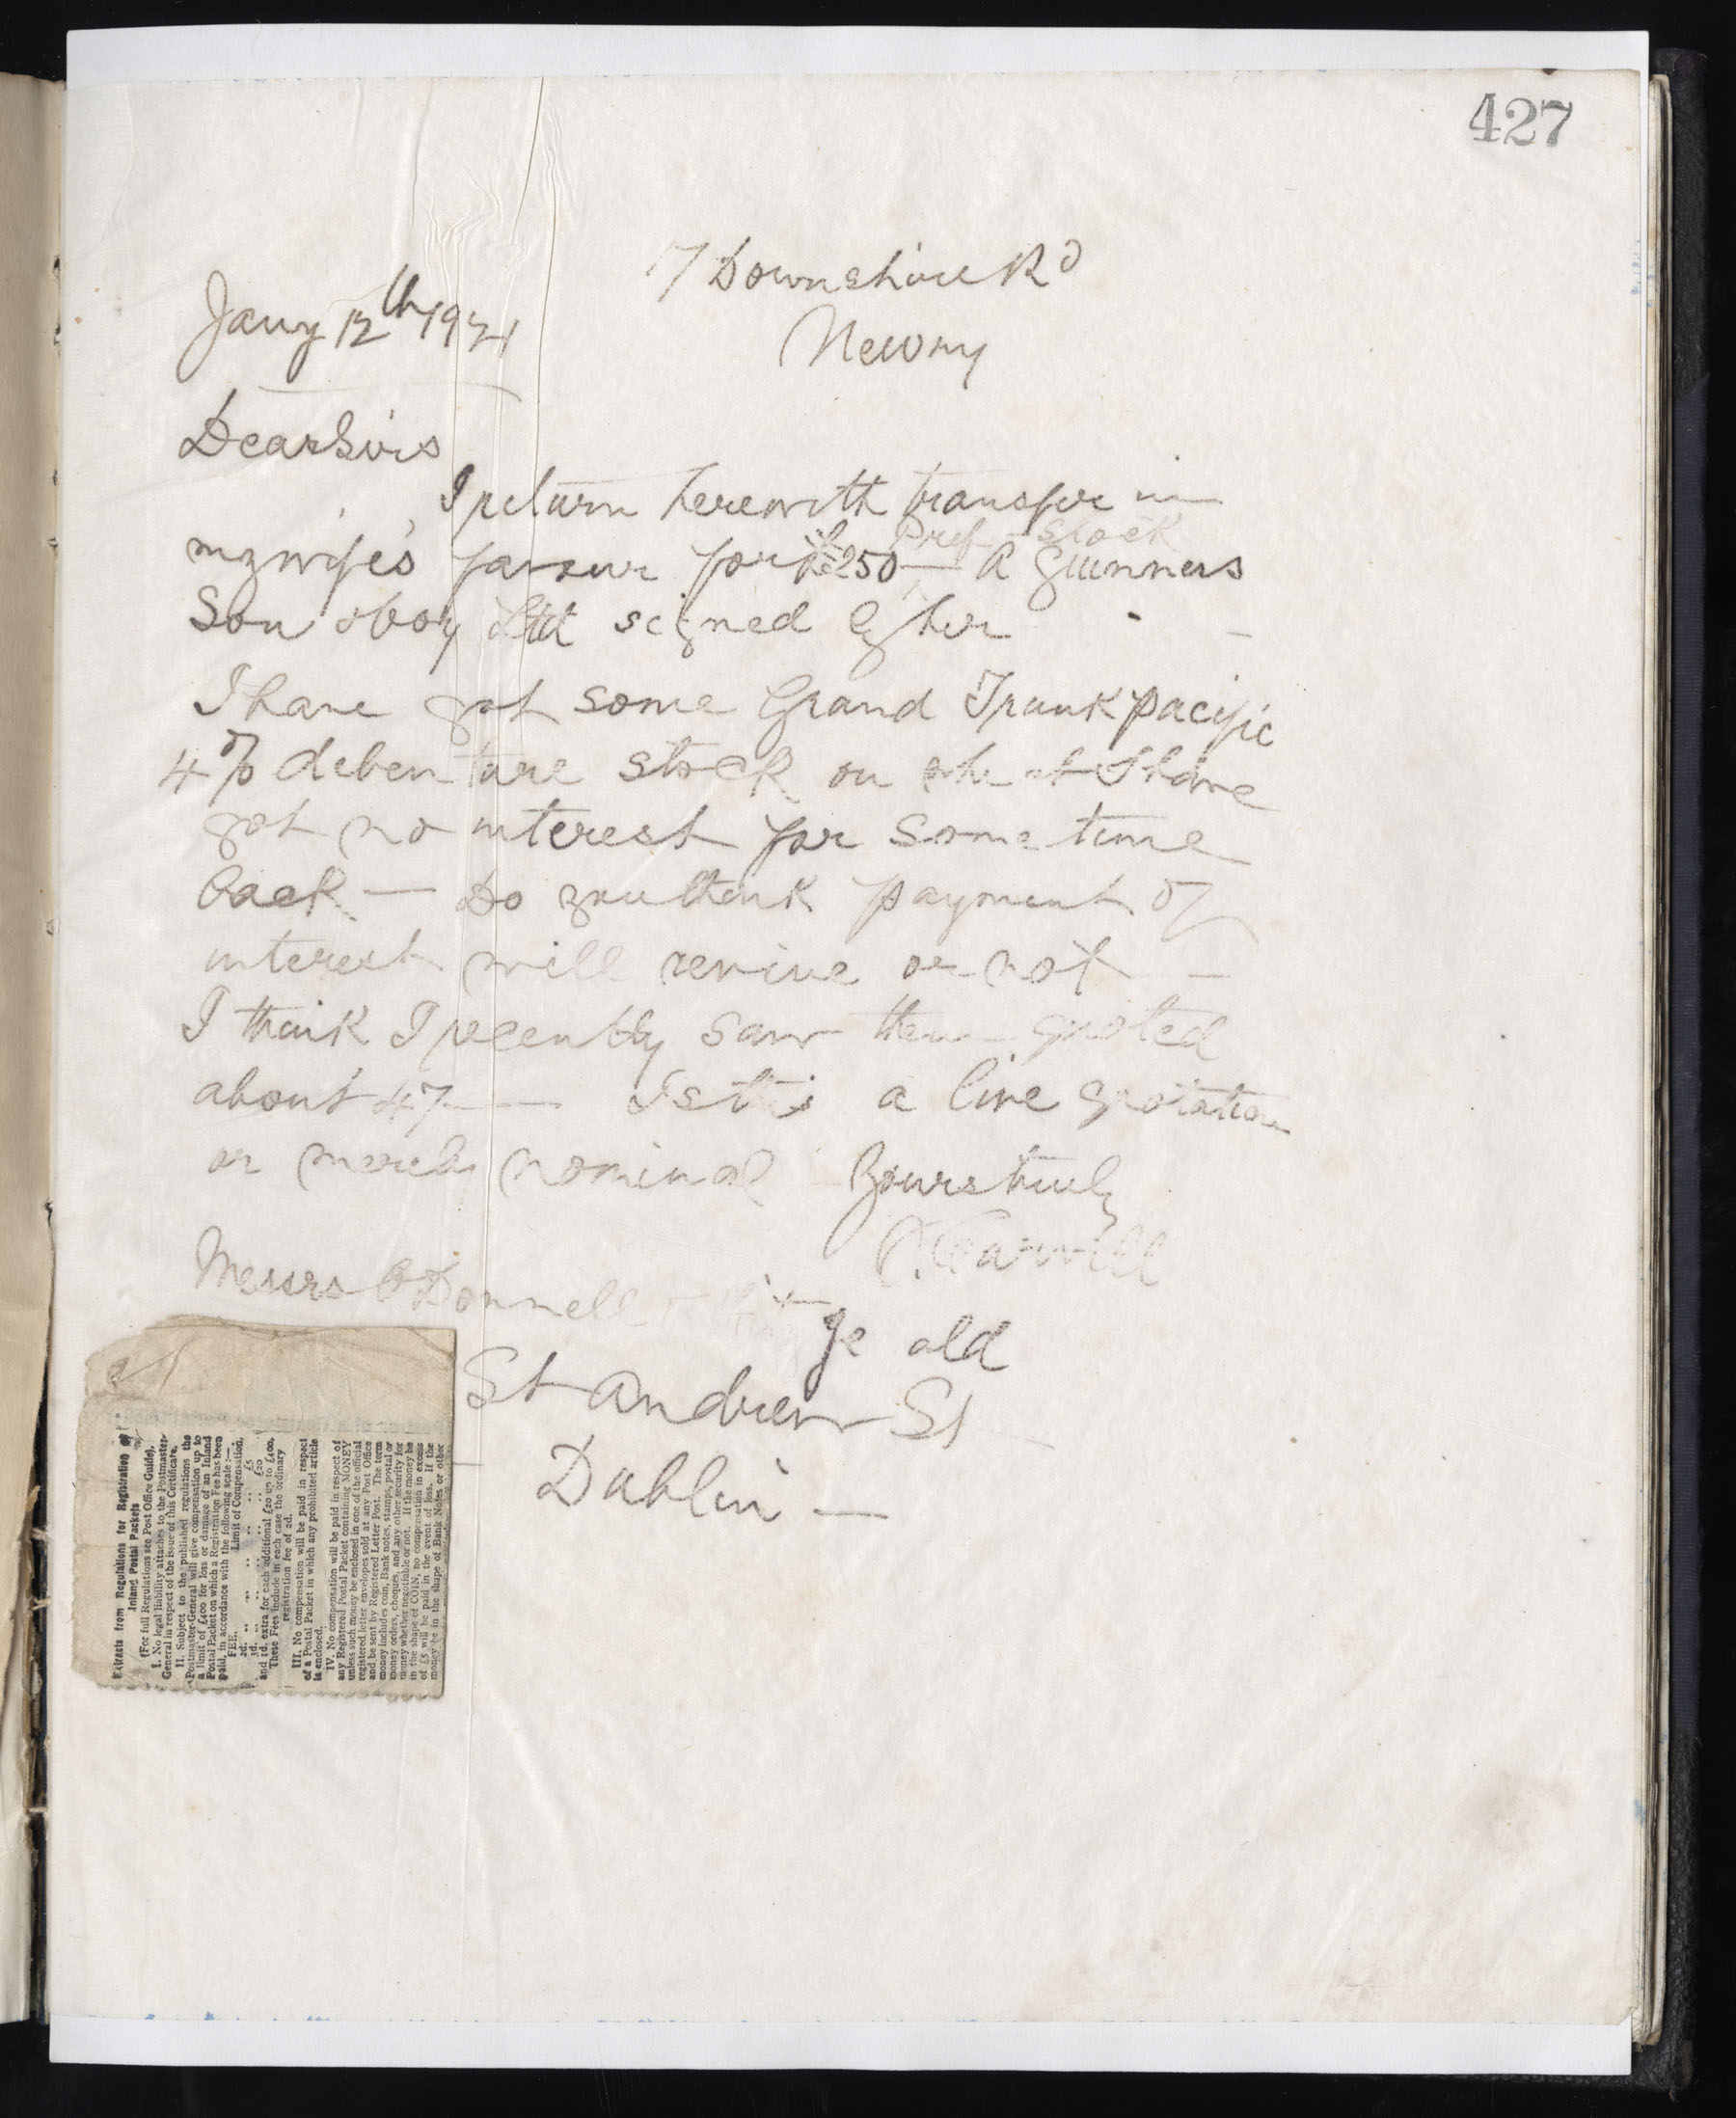 427
7 Downshire Rd
Jany 12th 1921
Newry
Dear Sirs
I return herewith transfer in
my wife's favour for £250 Pref Stock A Guinness
Son & Coy Ltd signed by her
I have got some Grand Trunk pacific
4% debenture stock on which I have
got no interest for some time
back — Do you think payment of
interest will revive or not —
I think I recently saw them quoted
about 47 — Is this a live quotation
or merely nominal Yours truly
Messrs O'Donnell
old
St Andrew St
Dublin —
Extracts from Regulations for Registration of
Inland Postal Packets
(For full Regulations see Post Office Guide).
I. No legal liability attaches to the Postmaster-
General in respect of the issue of this Certificate.
II. Subject to the published regulations the
Postmaster-General will give compensation up to
a limit of £400 for loss or damage of an Inland
Postal Packet on which a Registration Fee has been
paid, in accordance with the following scale:—
FEE. Limit of Compensation.
2d. .. .. .. .. £5
3d. .. .. .. .. £20
and 1d. extra for each additional £20 up to £400.
These Fees include in each case the ordinary
registration fee of 2d.
III. No compensation will be paid in respect
of a Postal Packet in which any prohibited article
is enclosed.
IV. No compensation will be paid in respect of
any Registered Postal Packet containing MONEY
unless such money be enclosed in one of the official
registered letter envelopes sold at any Post Office
and be sent by Registered Letter Post. The term
money includes coin, Bank notes, stamps, postal or
money orders, cheques, and any other security for
money whether negotiable or not. If the money be
in the shape of COIN, no compensation in excess
of £5 will be paid in the event of loss. If the
money be in the shape of Bank Notes or other